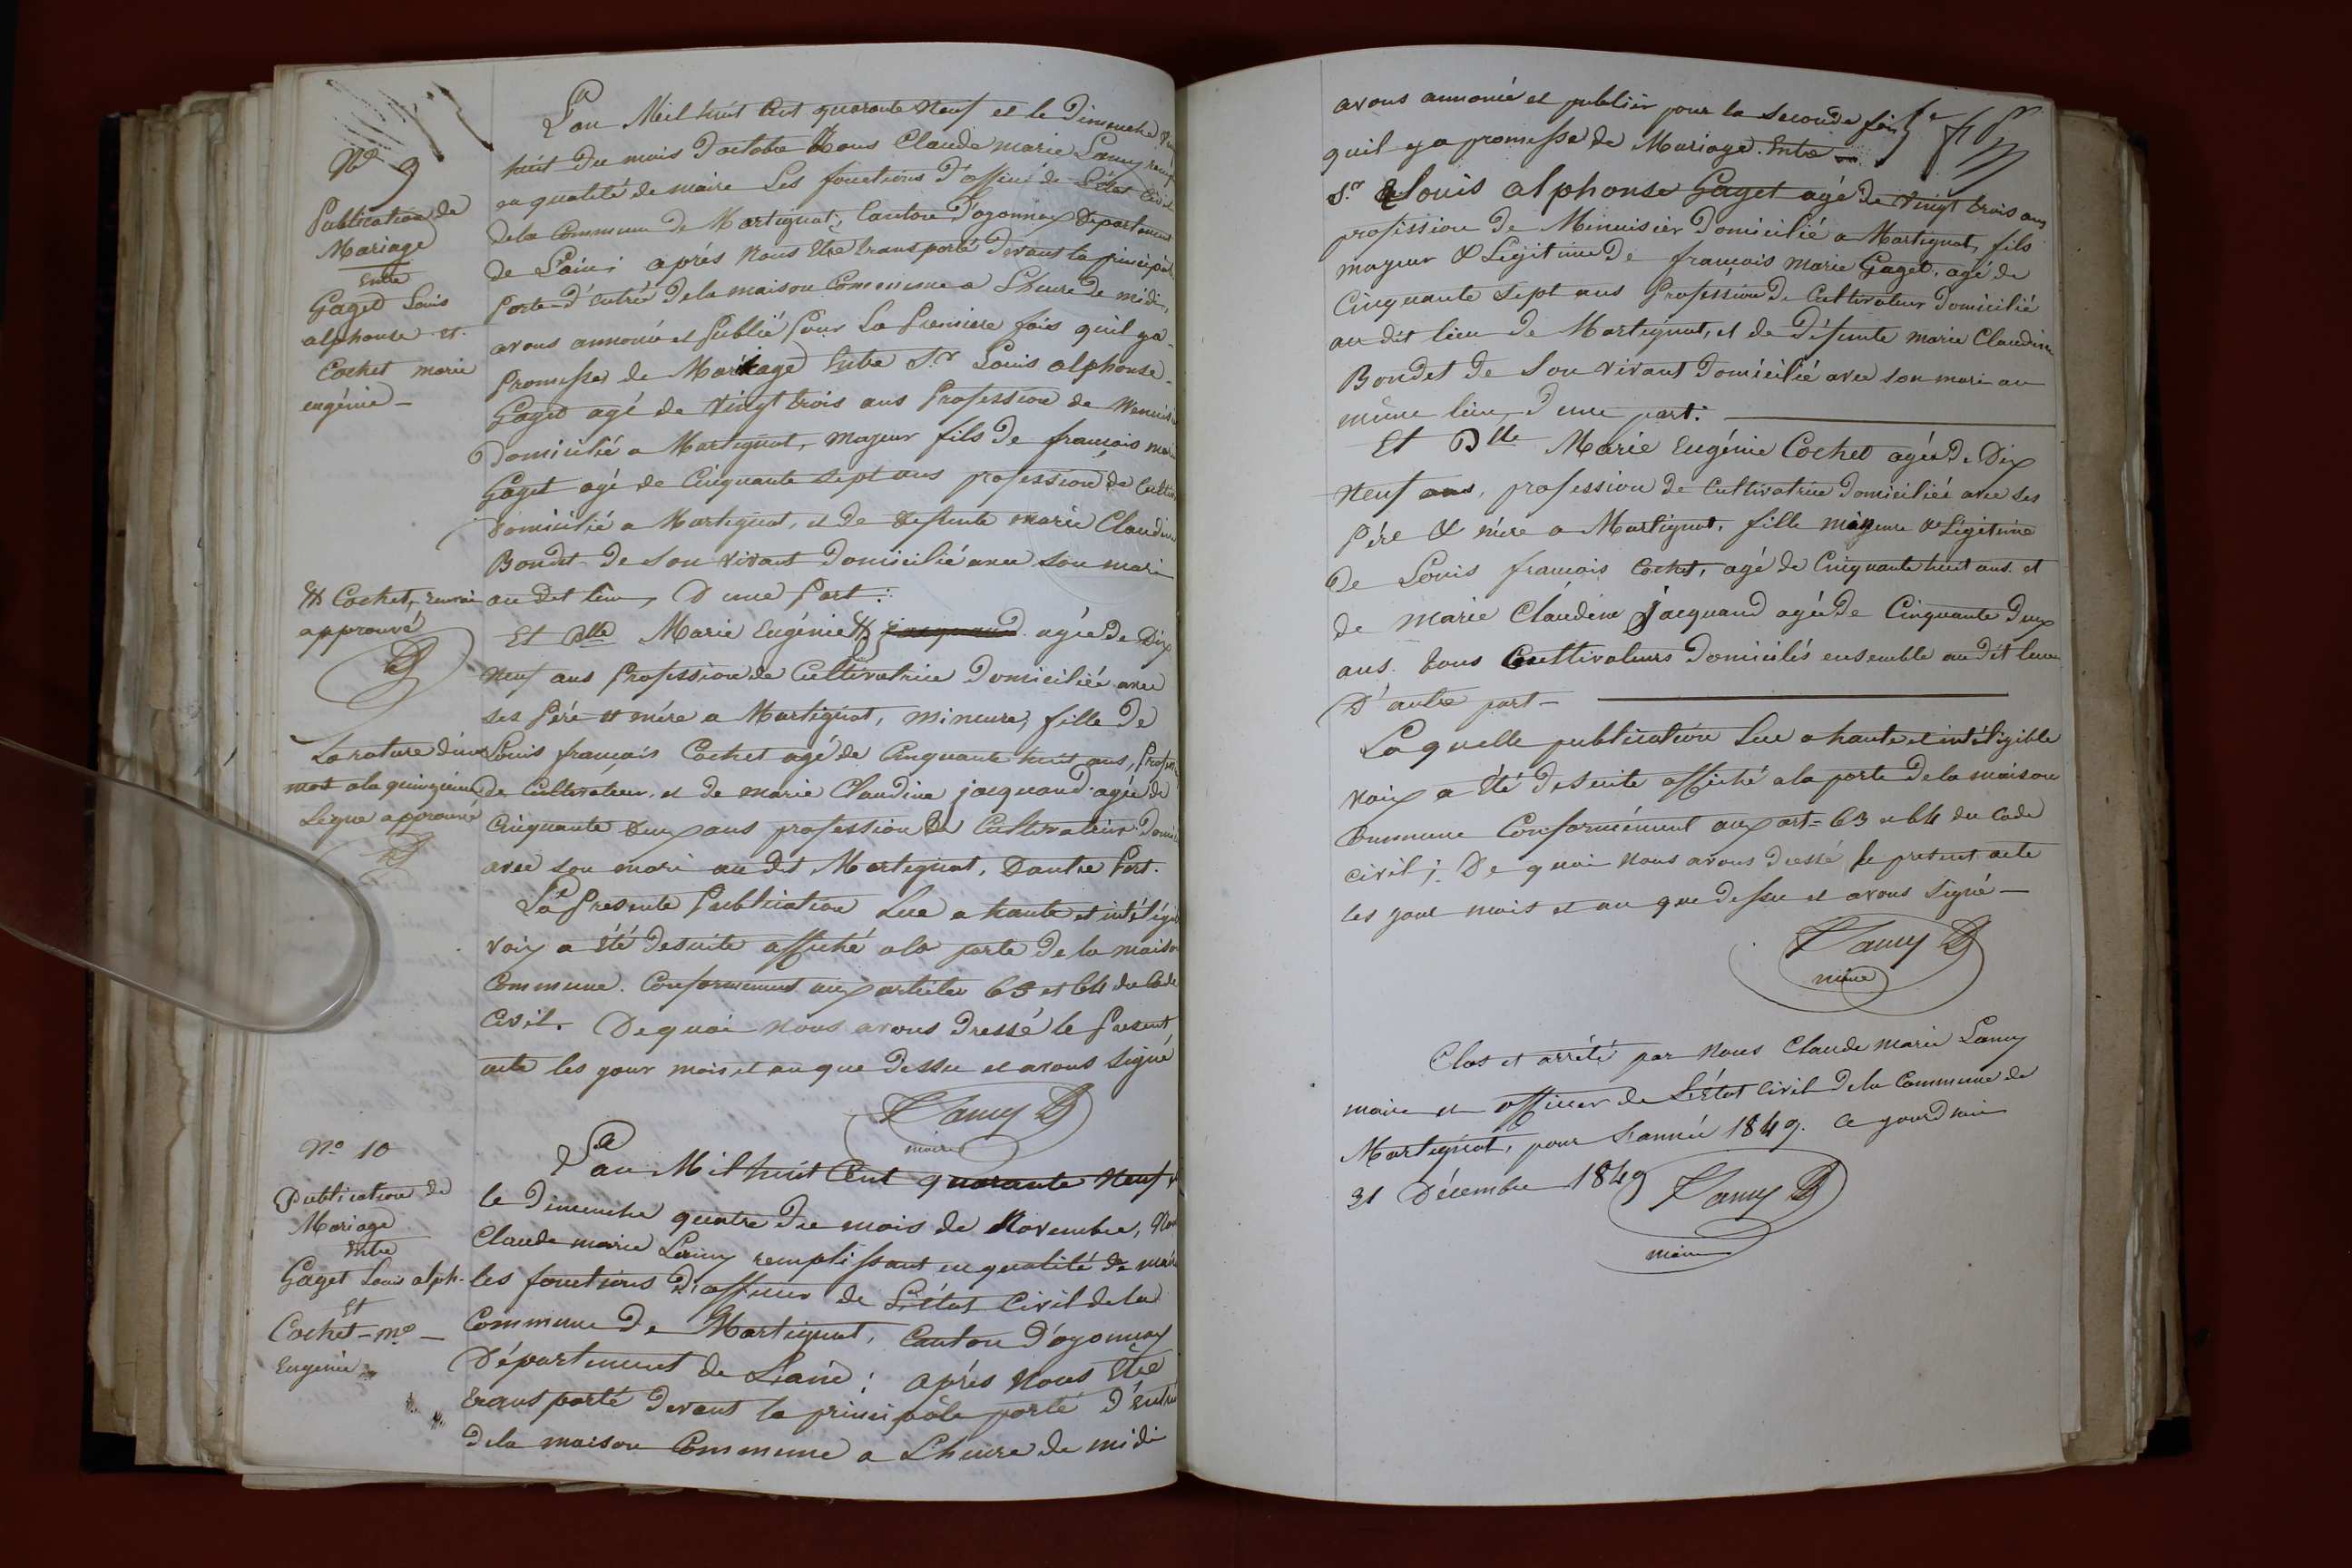 N° 9
Publication de
Mariage
Entre
Gaget Louis
alphonse et
Cochet marie
eugénie —
L'an Mil huit Cent quarante Neuf et le Dimanche
huit du mois d'octobre Nous Claude marie Lamy
en qualité de maire Les fonctions d'officier de L'état Civil
dela Commune de Martignat, Canton d'oyonnax Département
de L'ain; après Nous Etre transporté devant la principale
Porte d'entrée dela maison Commune a L'heure de midi,
avons annoncé et Publié Pour La Premiere fois quil ya
Promesse de Mariage Entre Sr Louis alphonse
Gaget agé de vingt trois ans Profession de Menuisier
Domicilié a Martignat, Majeur fils de françois marie
Gaget agé de Cinquante sept ans profession de Cultiv
Domicilié a Martignat, et de defunte marie Claudine
Bondet de son vivant Domicilié avec son mari
au dit lieu, D'une Part:
Cochet, renvoi
approuvé
Et Dlle Marie Eugénie jacquand agée de Dix
Neuf ans Profession de Cultivatrice Domiciliée avec
ses Péré et mére a Martignat, mineure, fille de
La rature d'un
mot a la quinzieme
Ligne approuvé
Louis françois Cochet agé de Cinquante huit ans, Profess
de Cultivateur, et de marie Claudine jacquand agée de
Cinquante Deux ans profession de Cultivateur Domi
avec son mari au dit Martignat, D'autre Part.
La Presente Publication Lue a haute et intéligib
voix a été desuite affiché a la porte de la maison
Commune. Conformement aux articles 63 et 64 du Code
Civil. De quoi Nous avons Dressé le Present
acte les jour mois et an que dessu et avons Signé
Lamy
maire
N° 10
Publication de
Mariage
Entre
Gaget Louis alph.
Et
Cochet – me —
Eugénie
L'an Mil huit Cent quarante Neuf &
le Dimanche quatre du mois de Novembre, Nous
Claude marie Lamy remplissant en qualité de maire
les fonctions d'officier de L'état Civil de la
Commune de Martignat, Canton d'oyonnax
Département de L'ain: après Nous Etre
transporté devant la principale porte d'entré
dela maison Commune a L'heure de midi
avons annoncé et publier pour la seconde fois
quil y a promesse de Mariage. Entre
Sr Louis alphonse Gaget agé de vingt trois ans
profession de Menuisier Domicilié a Martignat, fils
mageur & Légitime de françois marie Gaget, agé de
Cinquante sept ans Profession de Cultivateur Domicilié
au dit lieu de Martignat, et de Défunte marie Claudine
Bondet de son vivant Domicilié avec son mari au
même lieu, d'une part:
Et Dlle Marie Eugénie Cochet agée de Dix
Neuf ans, profession de Cultivatrice Domiciliée avec ses
Pére & mére a Martignat, fille mineure & Légitime
De Louis françois Cochet, agé de Cinquante huit ans et
de marie Claudine jacquand agée de Cinquante Deux
ans. tous Cultivateurs Domiciliés ensemble au dit lieu
D'autre part —
Laquelle publication Lue a haute et intéligible
voix a été desuite affiché a la porte de la maison
Commune Conformément aux art= 63 et 64 du Code
Civil; De quoi Nous avons dressé le present acte
les jour mois et an que dessu et avons Signé —
Lamy
maire
Clos et arrété par Nous Claude marie Lamy
maire et officier de L'état Civil dela Commune de
Martignat, pour L'année 1849. ce jourd'hui
31 Décembre 1849
Lamy
maire